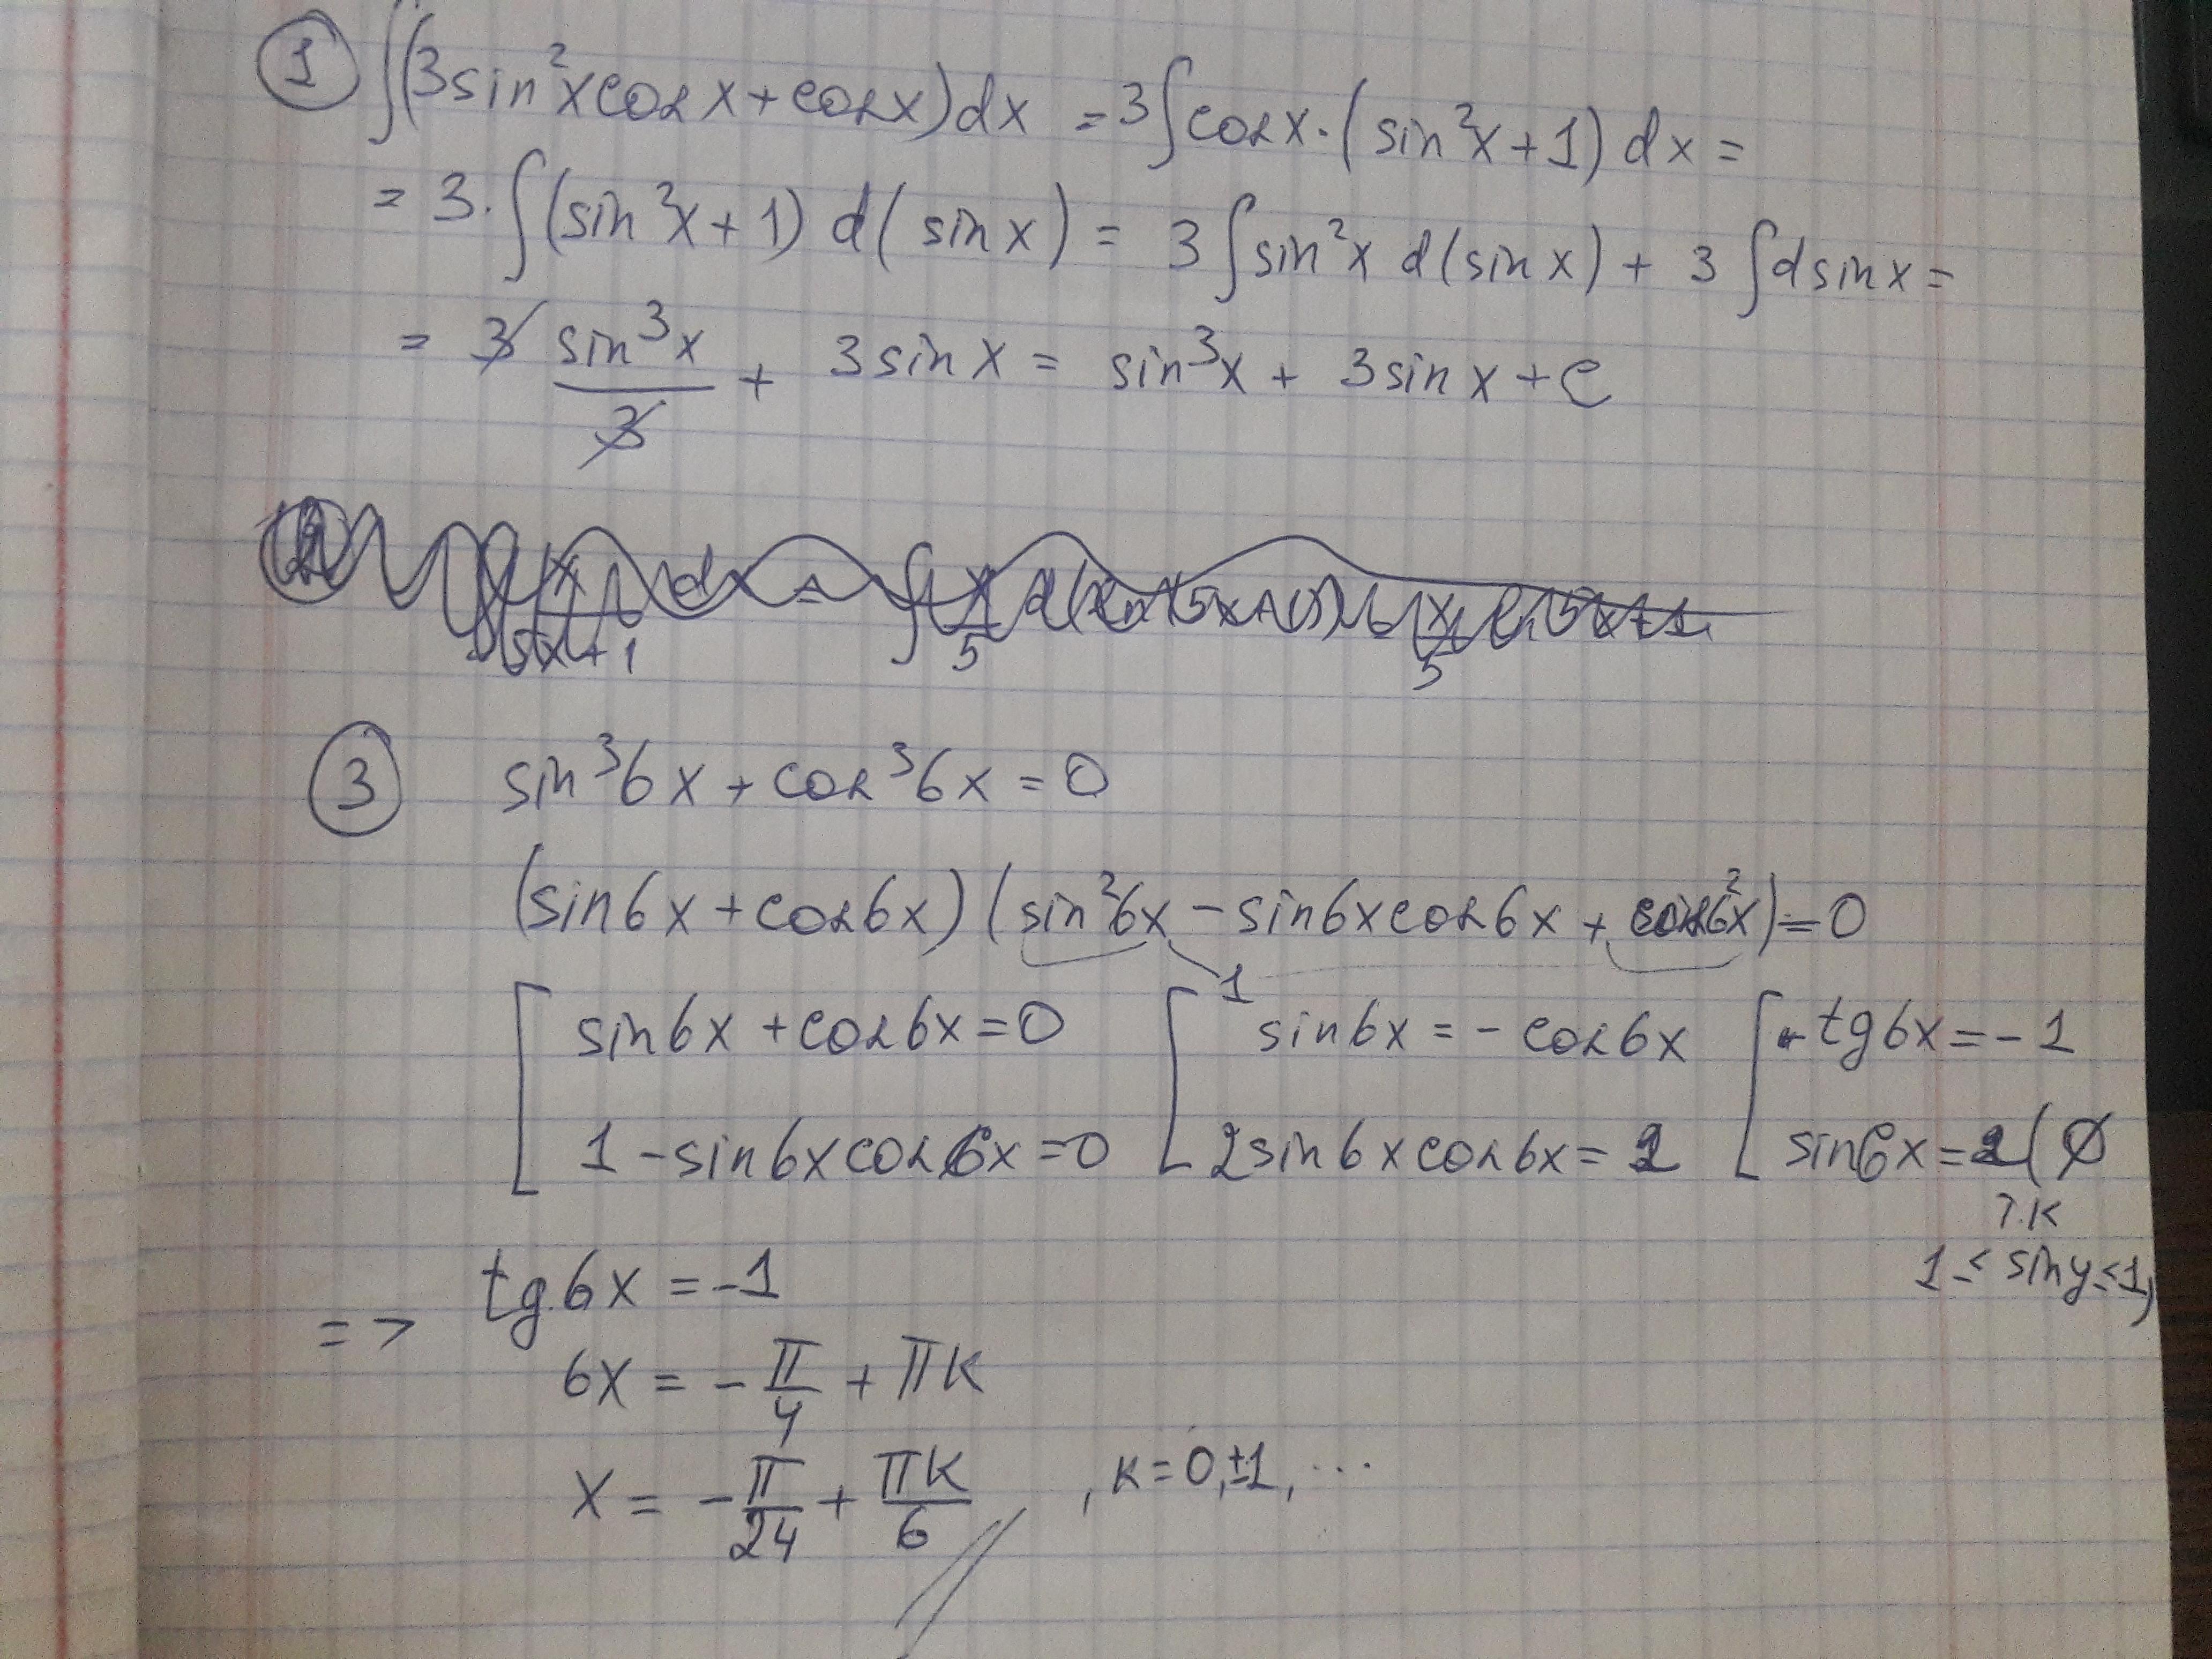 ① ∫(3sin²x cos x + cos x)dx = 3∫cos x · (sin²x + 1) dx =
= 3 · ∫(sin²x + 1) d(sin x) = 3∫sin²x d(sin x) + 3∫d sin x =
= 3 sin³x / 3 + 3 sin x = sin³x + 3 sin x + C
③ sin³6x + cos³6x = 0
(sin6x + cos6x)(sin²6x − sin6x cos6x + cos²6x) = 0
1
[ sin6x + cos6x = 0 [ sin6x = − cos6x [ tg6x = −1
1 − sin6x cos6x = 0 2sin6x cos6x = 2 sin6x = 2 (∅
т.к
1 ≤ sin y ≤ 1)
=> tg 6x = −1
6x = − π/4 + πк
x = − π/24 + πк/6 , к = 0, ±1, ...